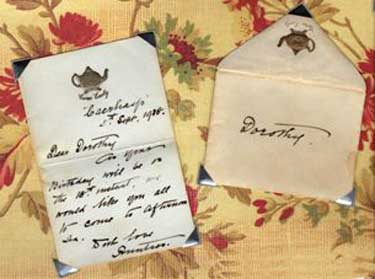 "Caerhays"
5th Sept. 1938.
Dear Dorothy
As your
Birthday will be on
the 18th instant, we
would like you all
to come to afternoon
tea. With love
Dorothy.